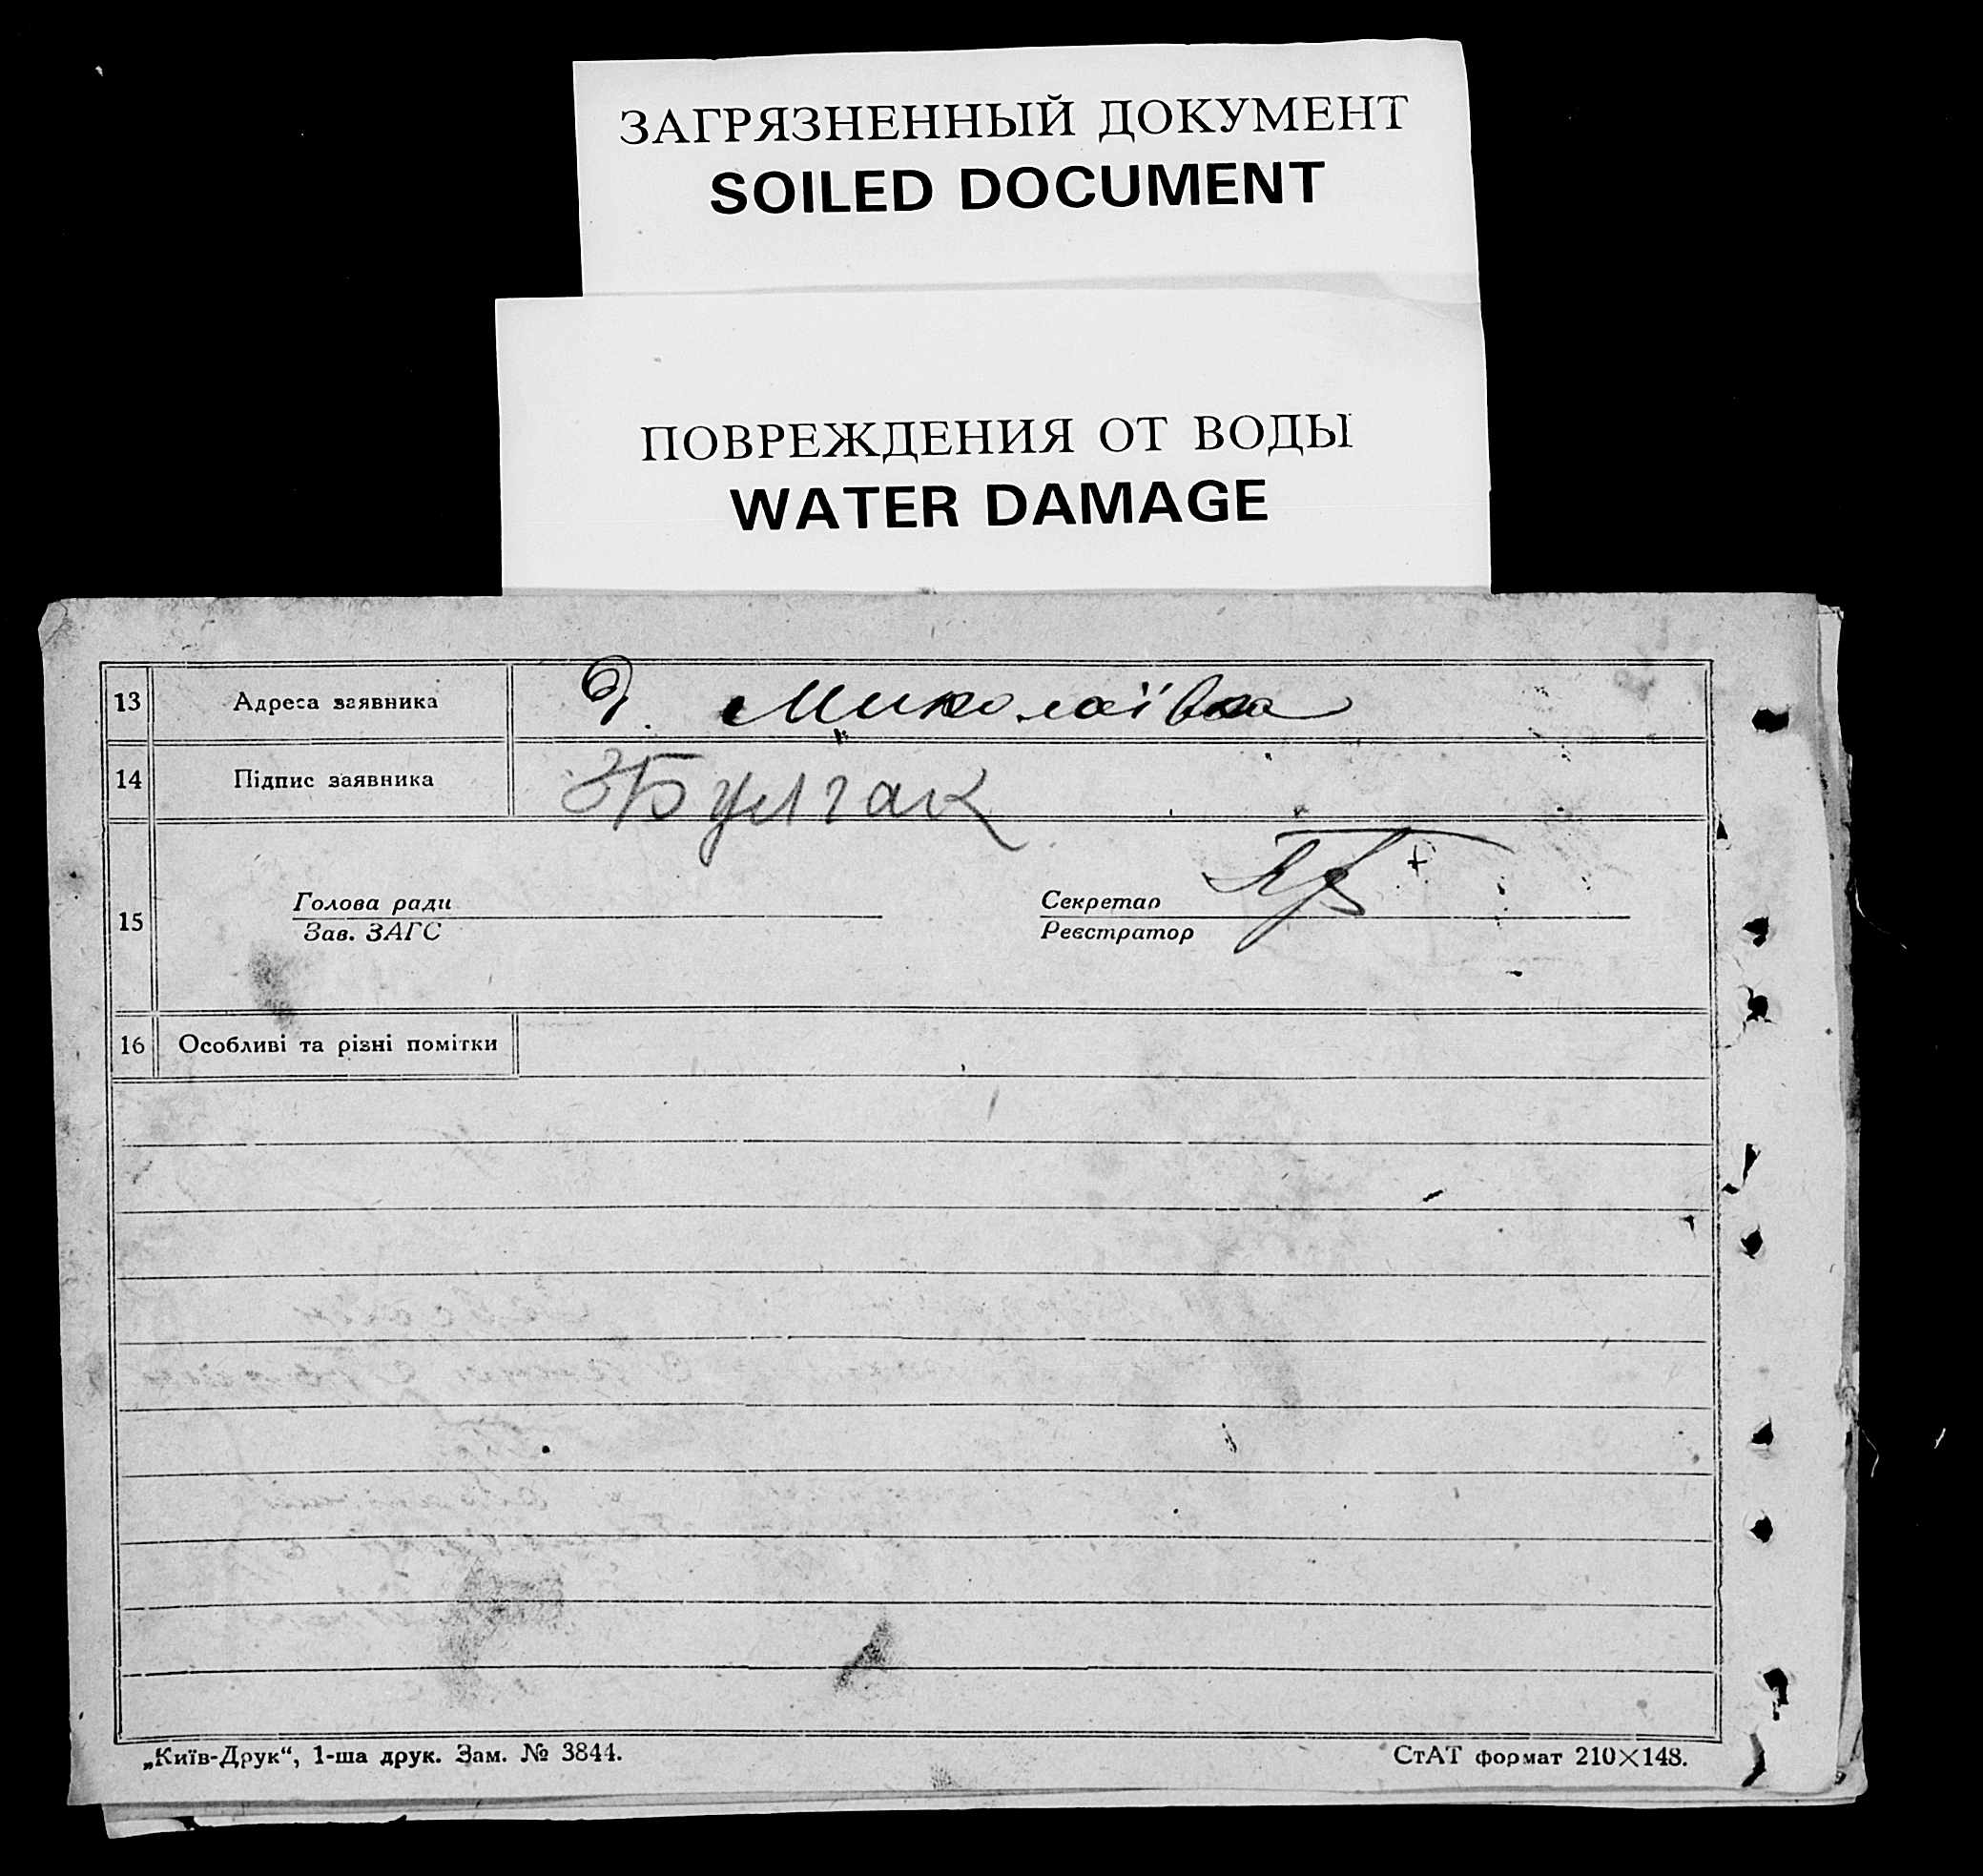 ЗАГРЯЗНЕННЫЙ ДОКУМЕНТ
SOILED DOCUMENT
ПОВРЕЖДЕНИЯ ОТ ВОДЫ
WATER DAMAGE
13 Адреса заявника Миколаївка
14 Підпис заявника Булгак
15 Голова ради Секретар
Зав. ЗАГС Реєстратор
16 Особливі та різні помітки
„Київ-Друк“, 1-ша друк. Зам. № 3844. СтАТ формат 210×148.